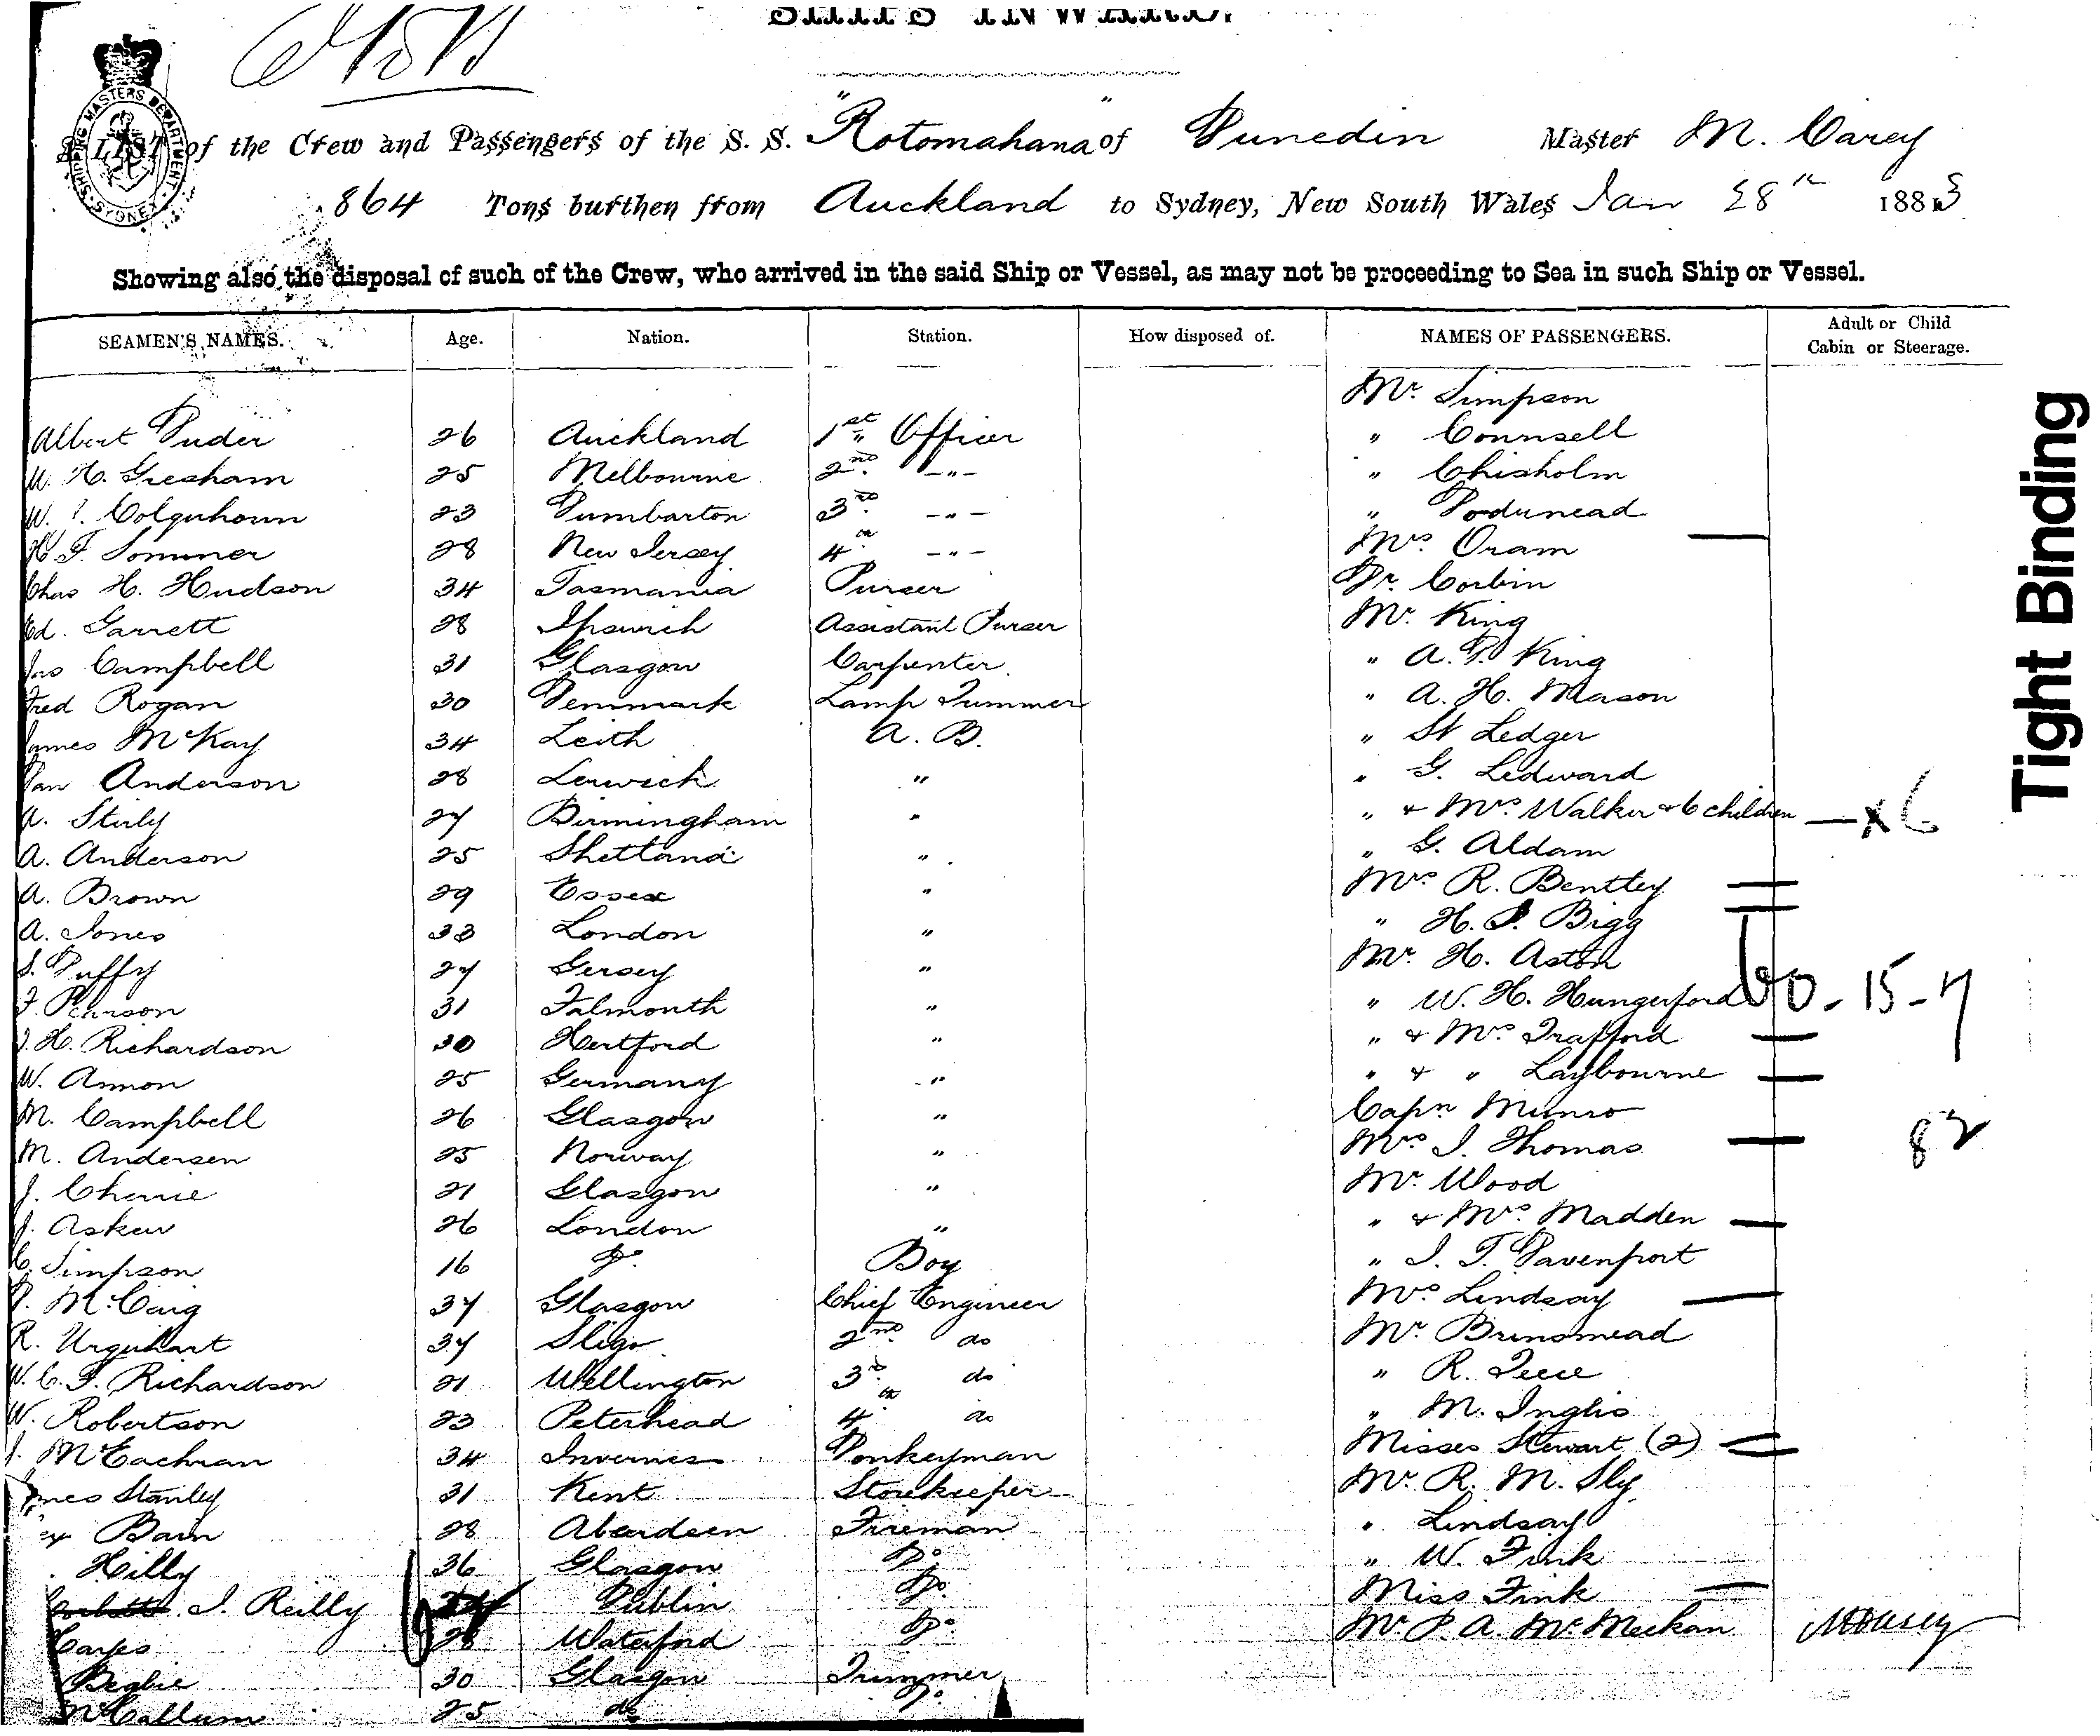 SHIPS INWARD.
SHIPPING MASTERS DEPARTMENT SYDNEY
A LIST of the Crew and Passengers of the S. S. "Rotomahana" of Dunedin Master M. Carey
864 Tons burthen from Auckland to Sydney, New South Wales Jan 28th 1883
Showing also the disposal of such of the Crew, who arrived in the said Ship or Vessel, as may not be proceeding to Sea in such Ship or Vessel.
SEAMEN'S NAMES. Age. Nation. Station. How disposed of. NAMES OF PASSENGERS. Adult or Child Cabin or Steerage.
Mr. Simpson
Albert Duder 26 Auckland 1st Officer " Counsell
W. H. Gresham 25 Melbourne 2nd -"- " Chisholm
W. Colquhoun 23 Dumbarton 3rd -"- "
H. F. Sommer 28 New Jersey 4th -"- Mrs. Oram
Chas H. Hudson 34 Tasmania Purser Dr. Corbin
Ed. Garrett 28 Ipswich Assistant Purser Mr. King
Jas Campbell 31 Glasgow Carpenter " A. P. King
Fred Rogan 30 Denmark Lamp Trimmer " A. H. Mason
James McKay 34 Leith A. B. " St Ledger
Dan Anderson 28 Lerwick " " G. Ledward
A. Stirly 27 Birmingham " " & Mrs. Walker & 6 children x 6
A. Anderson 25 Shetland " " G. Aldam
A. Brown 29 Essex " Mrs R. Bentley
A. Jones 33 London " " H. S. Bigg
J. Duffy 27 Gersey " Mr. H. Aston
F. Pearson 31 Falmouth " " W. H. Hungerford 60 - 15 - 7
J. H. Richardson 30 Hertford " " & Mrs. Trafford
W. Ammon 25 Germany " " & " Laybourne
M. Campbell 26 Glasgow " Capn Munro
M. Andersen 25 Norway " Mrs J. Thomas 82
J. Cherrie 21 Glasgow " Mr. Wood
J. Askew 26 London " " & Mrs. Madden
C. Simpson 16 Do Boy " J. T. Davenport
D. McCaig 37 Glasgow Chief Engineer Mrs Lindsay
R. Urquhart 37 Sligo 2nd do Mr. Brinsmead
W. C. F. Richardson 21 Wellington 3rd do " R. Teece
W. Robertson 23 Peterhead 4th do " M. Inglis
J. McEachran 34 Inverness Donkeyman Misses Stewart (2)
James Stanley 31 Kent Storekeeper Mr. R. M. Sly
Bain 28 Aberdeen Fireman " Lindsay
Hilly 36 Glasgow Do " W. Fink
J. Reilly Dublin Do Miss Fink
Carpes 28 Waterford Do Mr P. A. McMeckan MCarey
Begbie 30 Glasgow Trimmer
McCallum 25 do Do
Tight Binding